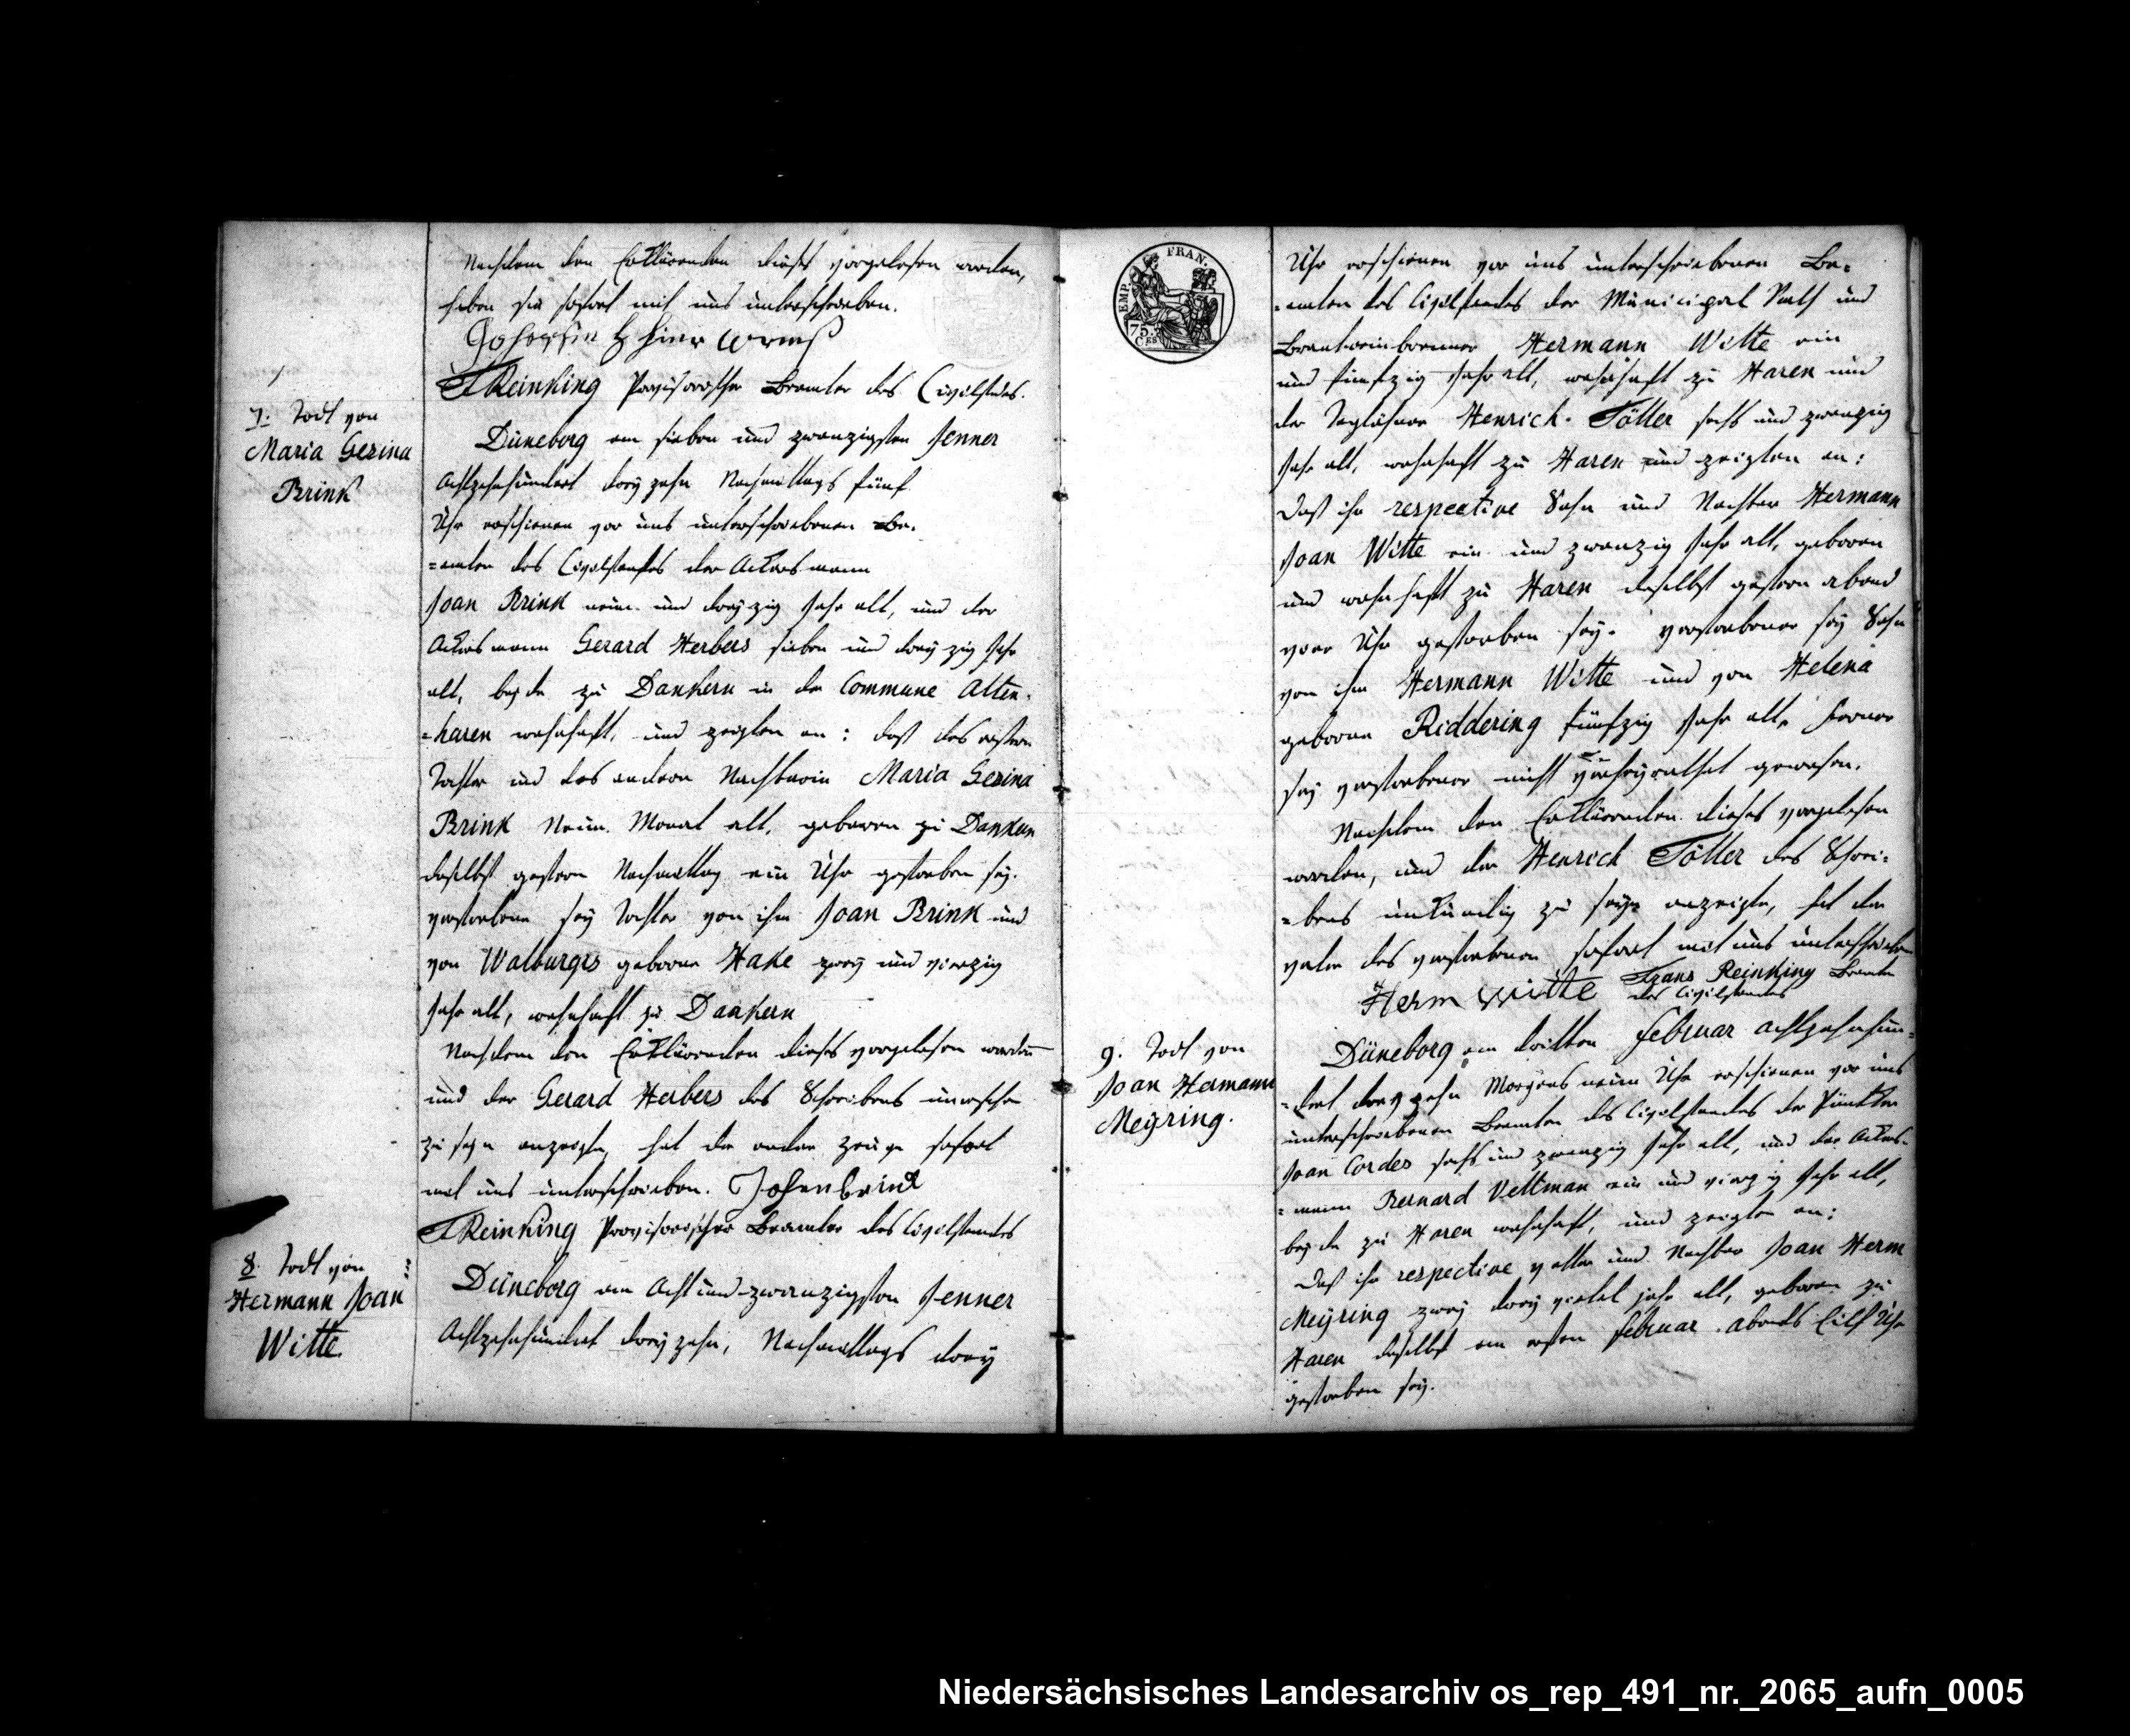 Nachdem den Erklärenden dieses vorgelesen worden,
haben sie sofort mit uns unterschrieben.
FReinking Provisorischer Beamter des Civilstandes.
7. Todt von
Maria Gesina
Brink
Düneborg am sieben und zwanzigsten Jenner
Achtzehnhundert dreyzehn Nachmittags fünf
Uhr erschienen vor uns unterschriebenen Be-
=amten des Civilstandes der Ackersmann
Joan Brink neun und dreyzig Jahr alt, und der
Ackersmann Gerard Herbers sieben und dreyzig Jahr
alt, beyde zu Dankern in der Commune Alten-
=haren wohnhaft, und zeigten an: daß des erstern
Tochter und des andern Nachbarin Maria Gesina
Brink Neun Monat alt, geboren zu Dankern
daselbst gestern Nachmittag ein Uhr gestorben sey.
verstorbene sey Tochter von ihm Joan Brink und
von Walburgis geborne Hake zwey und vierzig
Jahr alt, wohnhaft zu Dankern
Nachdem den Erklärenden dieses vorgelesen worden
und der Gerard Herbers des Schreibens unerfahren
zu seyn anzeigte, hat der andere Zeuge sofort
mit uns unterschrieben. Johan Brink
FReinking Provisorischer Beamter des Civilstandes
8. Todt von
Hermann Joan
Witte
Düneborg am Acht und zwanzigsten Jenner
Achtzehnhundert dreyzehn, Nachmittags drey
EMP. FRAN.
75.
CES
Uhr erschienen vor uns unterschriebenen Be-
=amten des Civilstandes der Municipal Rath und
Branteweinbrenner Hermann Witte ein
und fünfzig Jahr alt, wohnhaft zu Haren und
der Taglöhner Henrich Töller sechs und zwanzig
Jahr alt, wohnhaft zu Haren und zeigten an:
Daß ihr respective Sohn und Nachbar Hermann
Joan Witte ein und zwanzig Jahr alt, geboren
und wohnhaft zu Haren daselbst gestern abend
vier Uhr gestorben sey. verstorbener sey Sohn
von ihm Hermann Witte und von Helena
geborne Riddering fünfzig Jahr alt, ferner
sey verstorbener nicht verheyrathet gewesen.
Nachdem den Erklärenden dieses vorgelesen
worden, und der Henrich Töller des Schrei-
=bens unkundig zu seyn anzeigte, hat der
vater des verstorbenen sofort mit uns unterschrieben
Herm Witte Frans Reinking Beamter
des Civilstandes
9. Todt von
Joan Hermann
Meÿring.
Düneborg am dritten Februar achtzehnhun-
=dert dreyzehn Morgens neun Uhr erschienen vor uns
unterschriebenen Beamten des Civilstandes der
Joan Cordes sechs und zwanzig Jahr alt, und der Ackers-
=mann Bernard Veltman ein und vierzig Jahr alt,
beyde zu Haren wohnhaft, und zeigten an:
Daß ihr respective vetter und Nachbar Joan Herm
Meÿring zwey drey viertel jahr alt, geboren zu
Haren daselbst am ersten Februar abends Eilf Uhr
gestorben sey.
Niedersächsisches Landesarchiv os_rep_491_nr._2065_aufn_0005